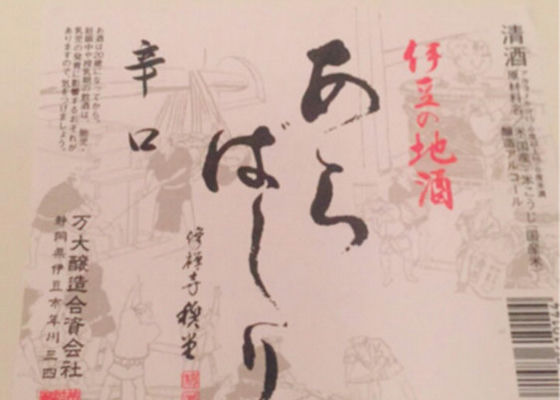 清酒
原材料名 米(国産)・米こうじ(国産米)
醸造アルコール
伊豆の地酒
あら
ばしり
修禅寺
辛口
万大醸造合資会社
静岡県伊豆市年川三四
お酒は20歳になってから。
妊娠中や授乳期の飲酒は、胎児・
乳児の発育に影響するおそれが
ありますので、気をつけましょう。